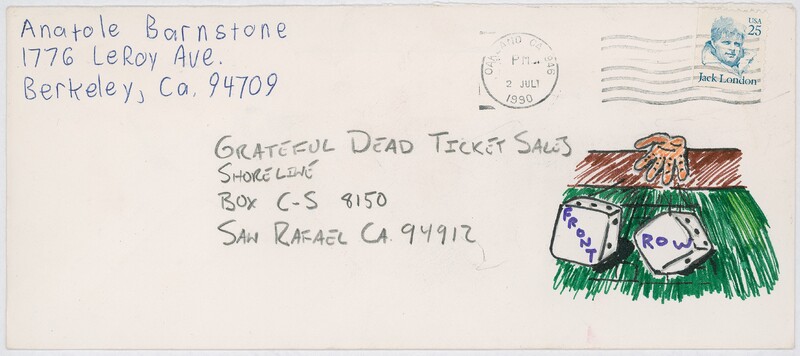 Anatole Barnstone
1776 LeRoy Ave.
Berkeley, Ca. 94709
OAKLAND CA 946
PM
2 JUL
1990
USA
25
Jack London
GRATEFUL DEAD TICKET SALES
SHORELINE
BOX C-S 8150
SAN RAFAEL CA. 94912
FRONT
ROW